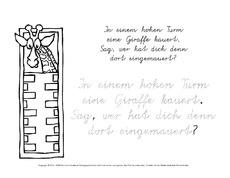 In einem hohen Turm
eine Giraffe kauert.
Sag, wer hat dich denn
dort eingemauert?
In einem hohen Turm
eine Giraffe kauert.
Sag, wer hat dich denn
dort eingemauert?